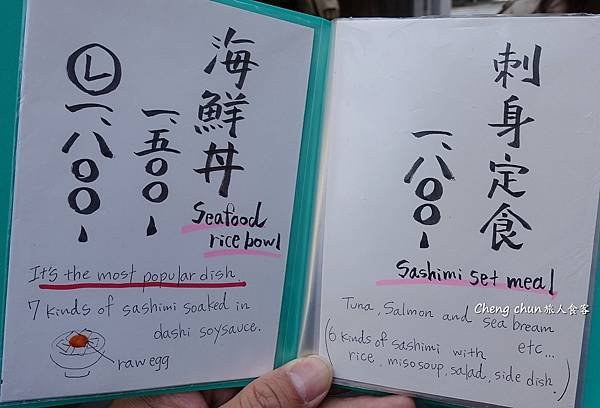 海鮮丼
一、五〇〇
Ⓛ 一、八〇〇
Seafood
rice bowl
It's the most popular dish.
7 kinds of sashimi soaked in
dashi soysauce.
raw egg
刺身定食
一、八〇〇
Sashimi set meal
Tuna, Salmon and sea bream
etc...
(6 kinds of sashimi with
rice, misosoup, salad, side dish.)
Cheng chun旅人食客